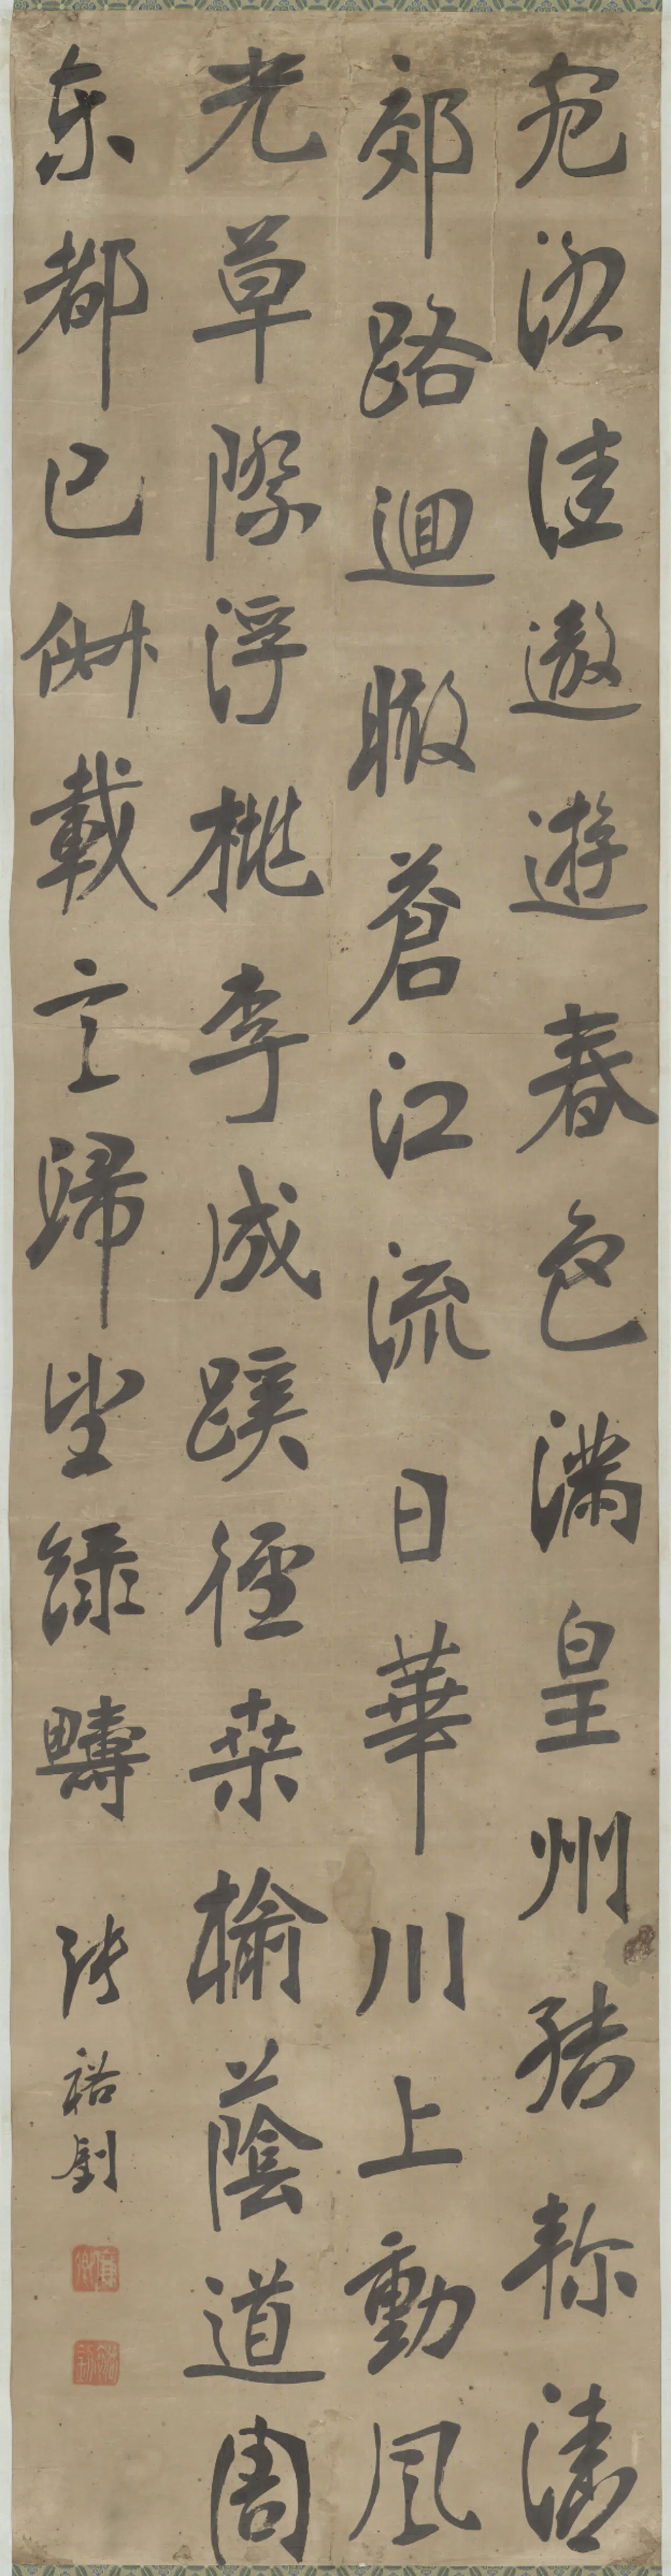 宛洛佳遨遊春色滿皇州結軫清
郊路迴瞰蒼江流日華川上動風
光草際浮桃李成蹊徑桑榆蔭道周
東都已俶載言歸望綠疇
張裕釗
廉卿